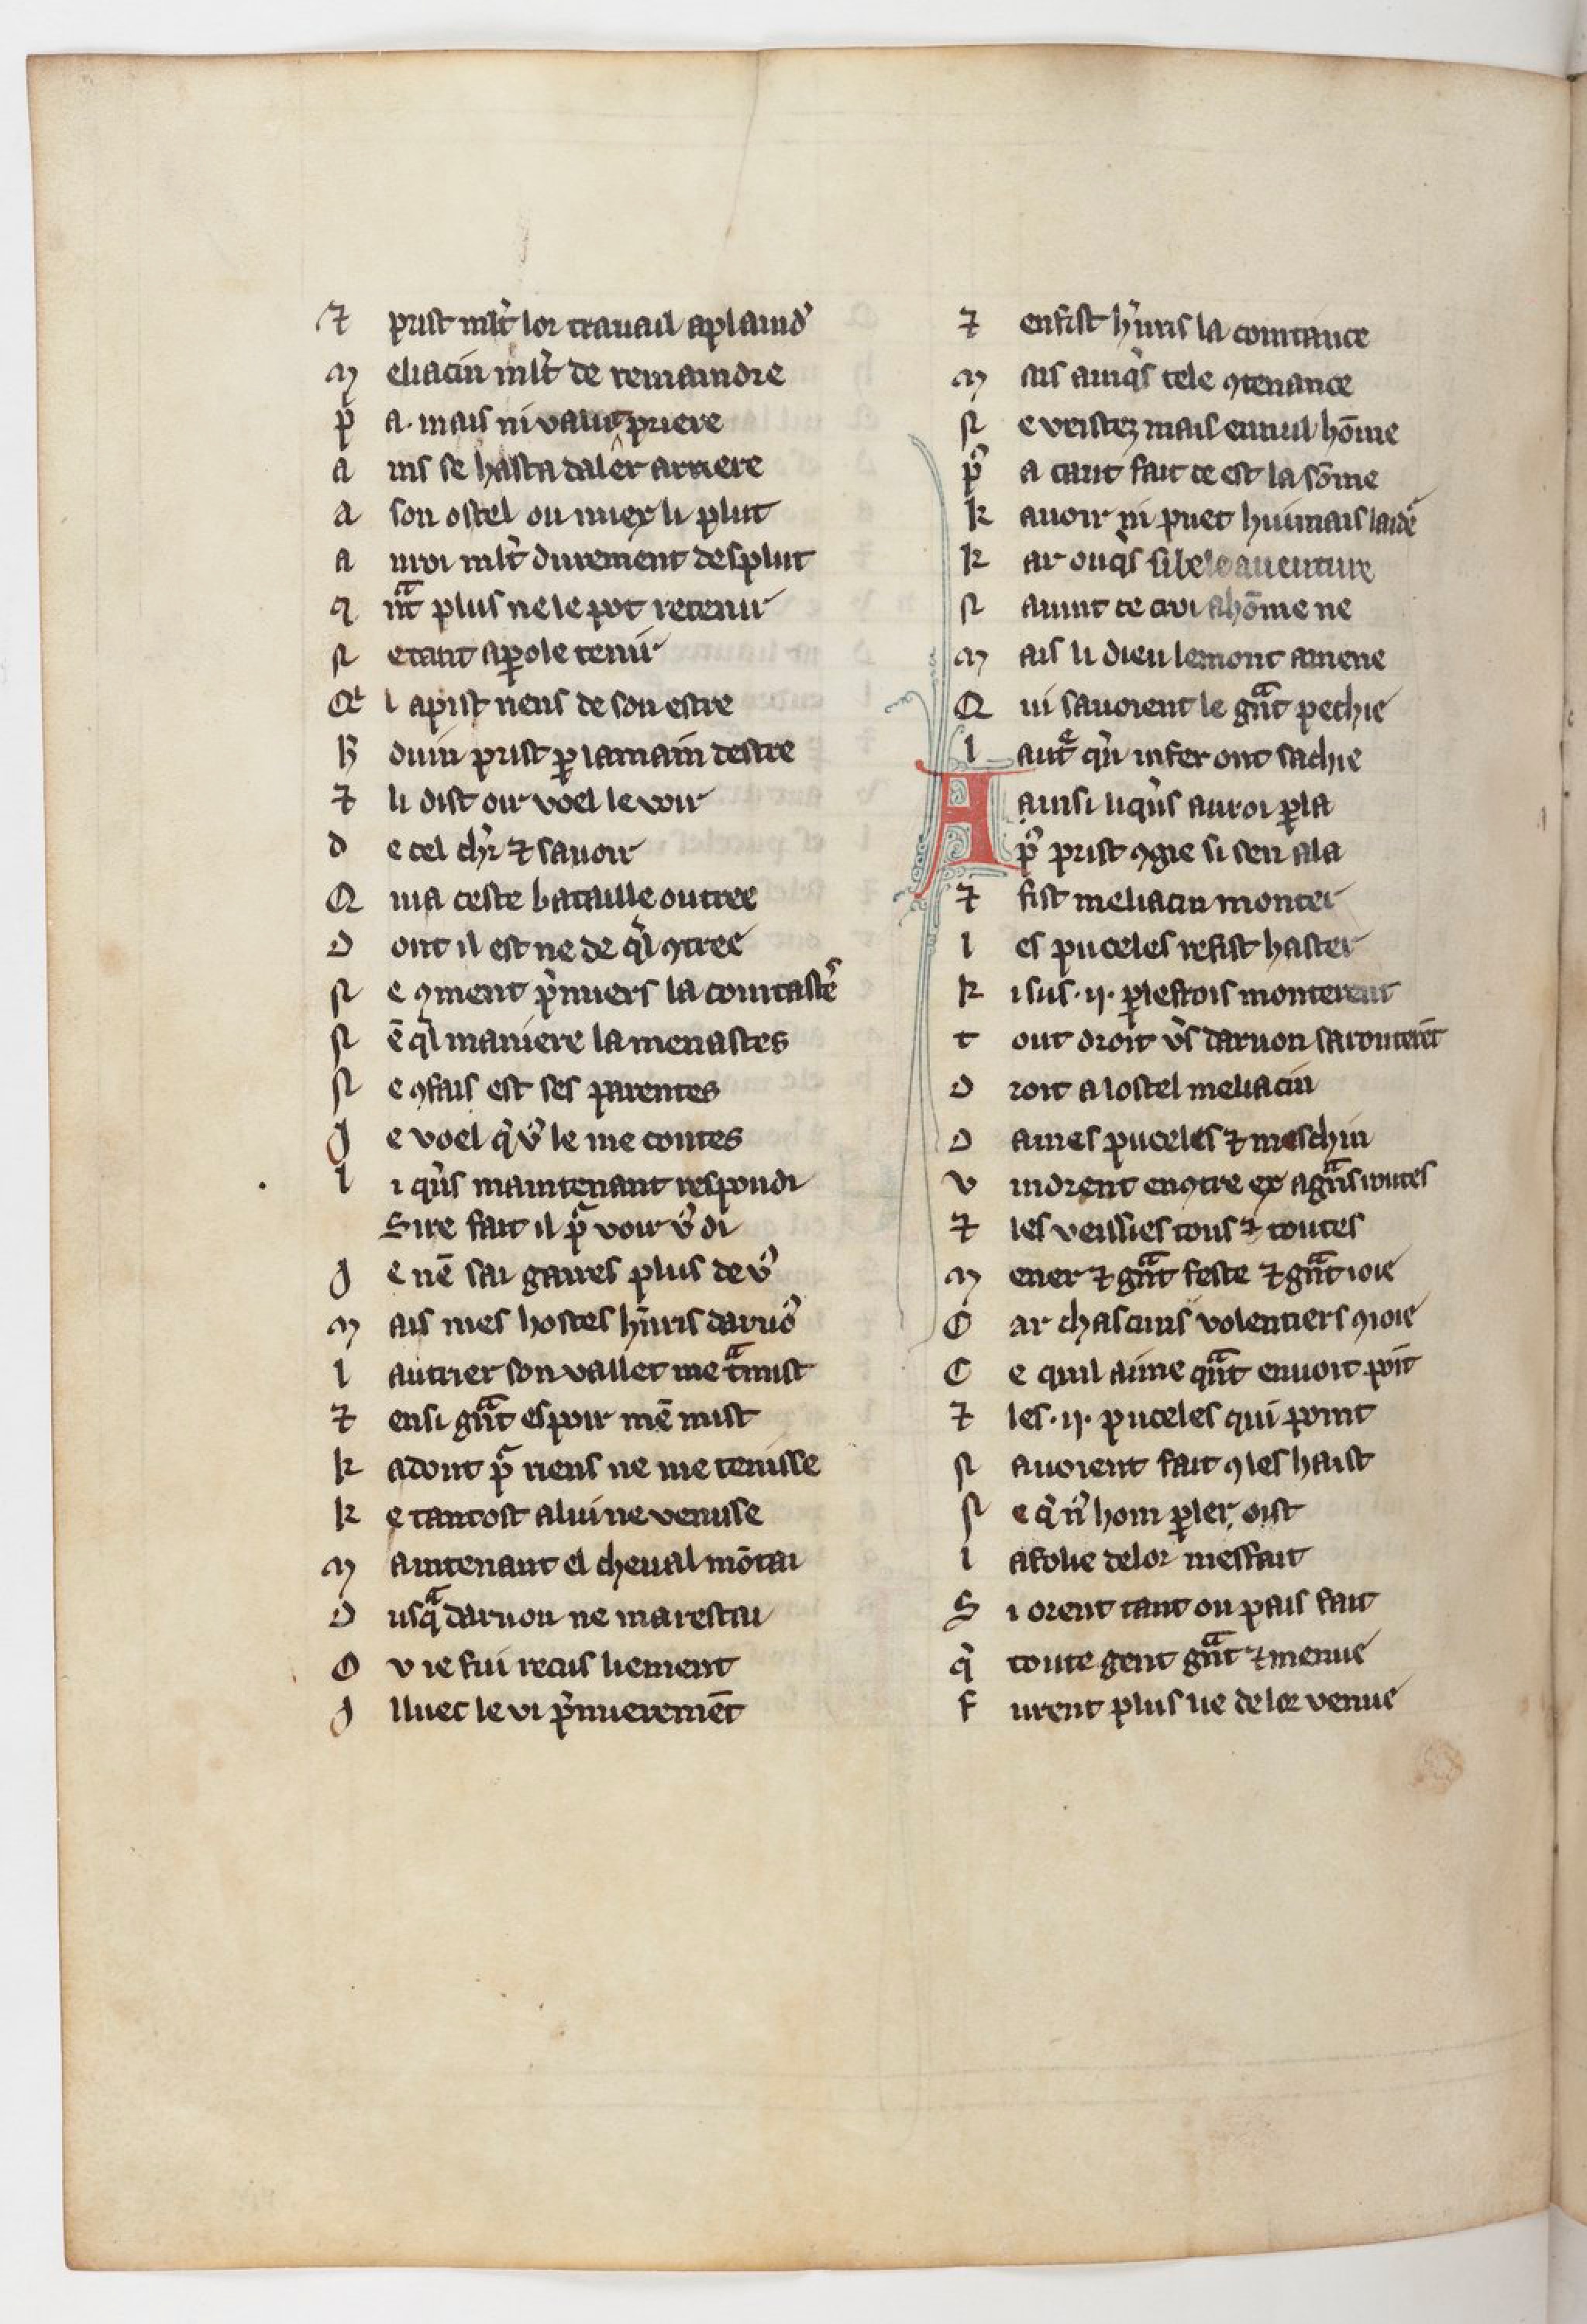 ⁊ prist ml̃t lor trauail aplaindˀ
M eliacin ml̃t de remaindre
P̾ a. mais ni vaut priere
A ins se hasta daler arriere
A son ostel ou miex li plut
A uroi ml̃t durement desplut
q nᵃ̃t plus ne le pot retenir
N e tant a ꝑole tenir
Q̃t l aprist riens de son estre
K duin prist ꝑ la main destre
⁊ li dist oir voel le voir
D e cel chr̃ ⁊ sauoir
Q ui a ceste bataille outree
D ont il est ne de q̃l ꝯtree
N e ꝯment p̾miers la contastẽs
N ẽ q̃l maniere la menastes
N e ꝯfais est ses parentes
J e voel q̾ vˀ le me contes
L i q̾ns maintenant respondi
Sire fait il pᵃ voir vˀ di
J e nẽ sai gaires plus de vˀ
M ais mes hostes hñris darnõ
L autrier son vallet me tᵃmist
⁊ ensi gᵃ̃nt espoir mẽ mist
K adont pᵃ riens ne me tenisse
K e tantost a lui ne venisse
M aintenant el cheual mõtai
D usqᵃ darnon ne marestai
O v ie fui recus liement
J lluec le vi p̾mieremẽt
⁊ enfist hˀnris la contance
M ais ainq̾s tele ꝯtenance
N e veistez mais en nul hõme
P̾ a tant fait ce est la sõme
K auoir ni puet huimais laidẽ
K ar onq̾s si bele auenture
N auint ce croi a hõme ne
M ais li dieu lemont amene
Q ui sauoient le gᵃ̃nt pechie
L autᵉ q̾n infer ont sachie
A ainsi li q̾ns au roi ꝑla
pˀ prist ꝯgie si sen ala
⁊ fist meliacin monter
L es puceles refist haster
K i sus .ij. palefrois monterent
T out droit vˀs darnon sarouterẽt
D roit a lostel meliacin
D ames puceles ⁊ meschin
V indrent enꝯtre ex a gᵃ̃ns routes
⁊ les veissies tous ⁊ toutes
M ener ⁊ gᵃ̃nt feste ⁊ gᵃ̃nt ioie
C ar chascuns volentiers ꝯioie
C e quil aime qᵃ̃nt en voit poĩt
⁊ les .ij. puceles qui point
N auoient fait ꝯ les haist
N e q̾ nˀ hom ꝑler oist
L a folie de lor messait
S i orent tant ou pais fait
q̾ toute gent gᵃ̃nt ⁊ menue
F urent plus lie de lor venue